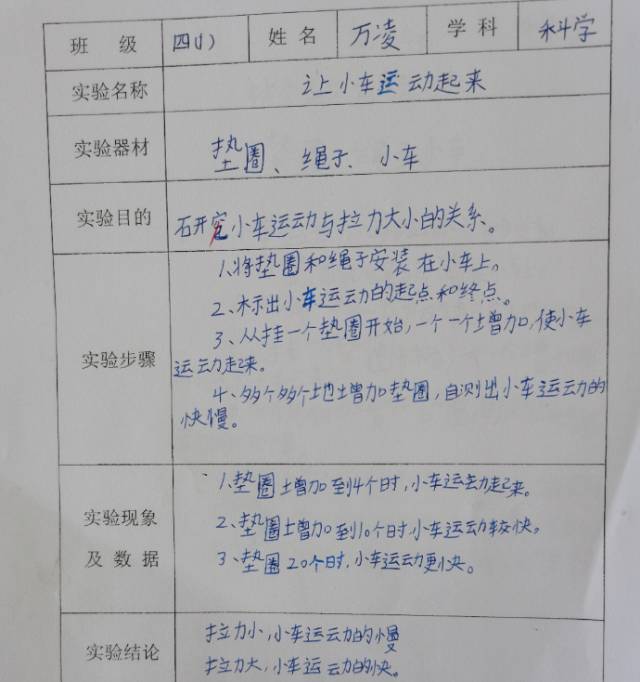 班 级 四(1) 姓名 万凌 学科 科学
实验名称 让小车运动起来
实验器材 垫圈、绳子、小车
实验目的 研究小车运动与拉力大小的关系。
实验步骤
1.将垫圈和绳子安装在小车上。
2、标出小车运动的起点和终点。
3、从挂一个垫圈开始,一个一个增加,使小车
运动起来。
4、多个多个地增加垫圈,目测出小车运动的
快慢。
实验现象
及 数 据
1、垫圈增加到4个时,小车运动起来。
2、垫圈增加到10个时,小车运动较快。
3、垫圈20个时,小车运动更快。
实验结论
拉力小,小车运动的慢
拉力大,小车运动的快。